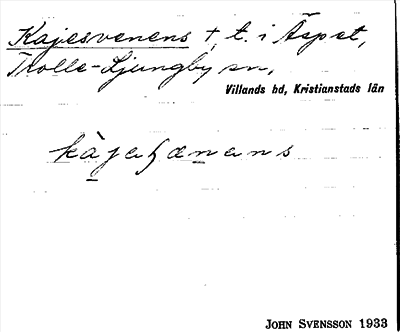 Kajesvenens †, t. i Äspet,
Trolle-Ljungby sn,
Villands hd, Kristianstads län
JOHN SVENSSON 1933